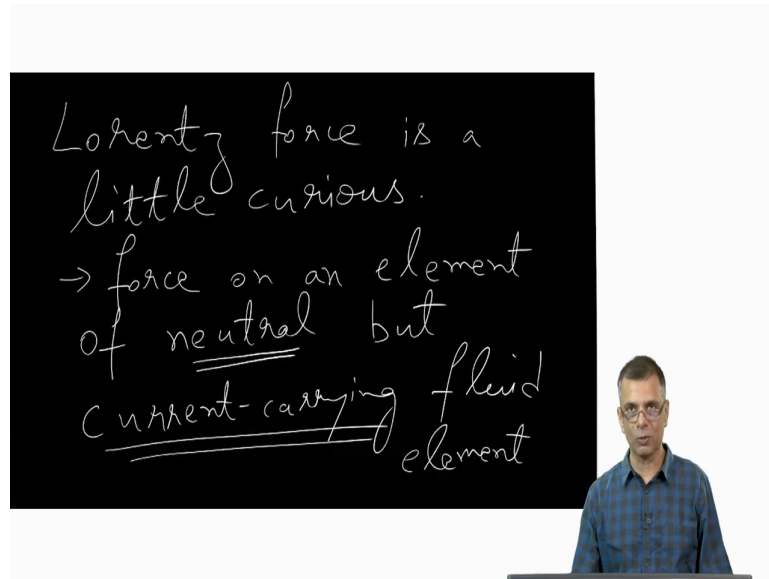 Lorentz force is a
little curious.
→ force on an element
of neutral but
current-carrying fluid
element